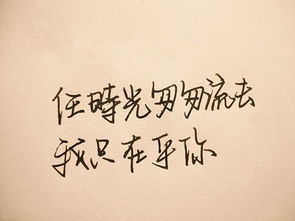 任時光匆匆流去
我只在乎你